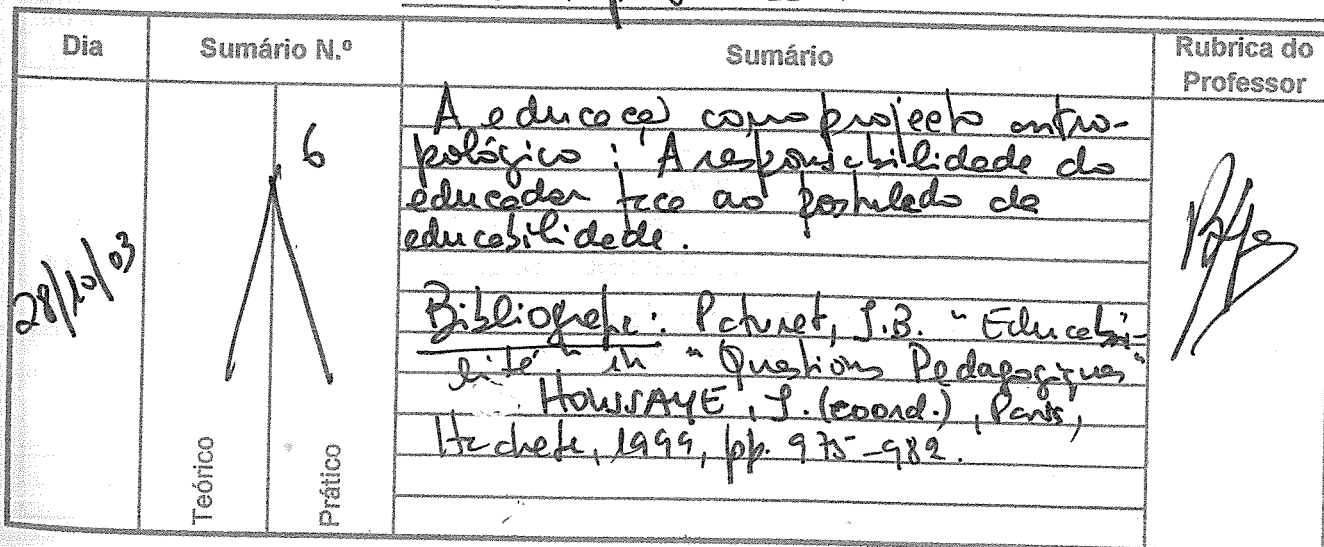 Dia
Sumário N.º
Sumário
Rubrica do
Professor
28/10/03
6
Teórico
Prático
A educação como projecto antro-
pológico : A responsabilidade do
educador face ao postulado da
educabilidade.
Bibliografia: Paturet, J.B. "Educabi-
lité" in "Questions Pedagogiques"
HOUSSAYE, J. (coord.), Paris,
Hachete, 1999, pp. 975-982.